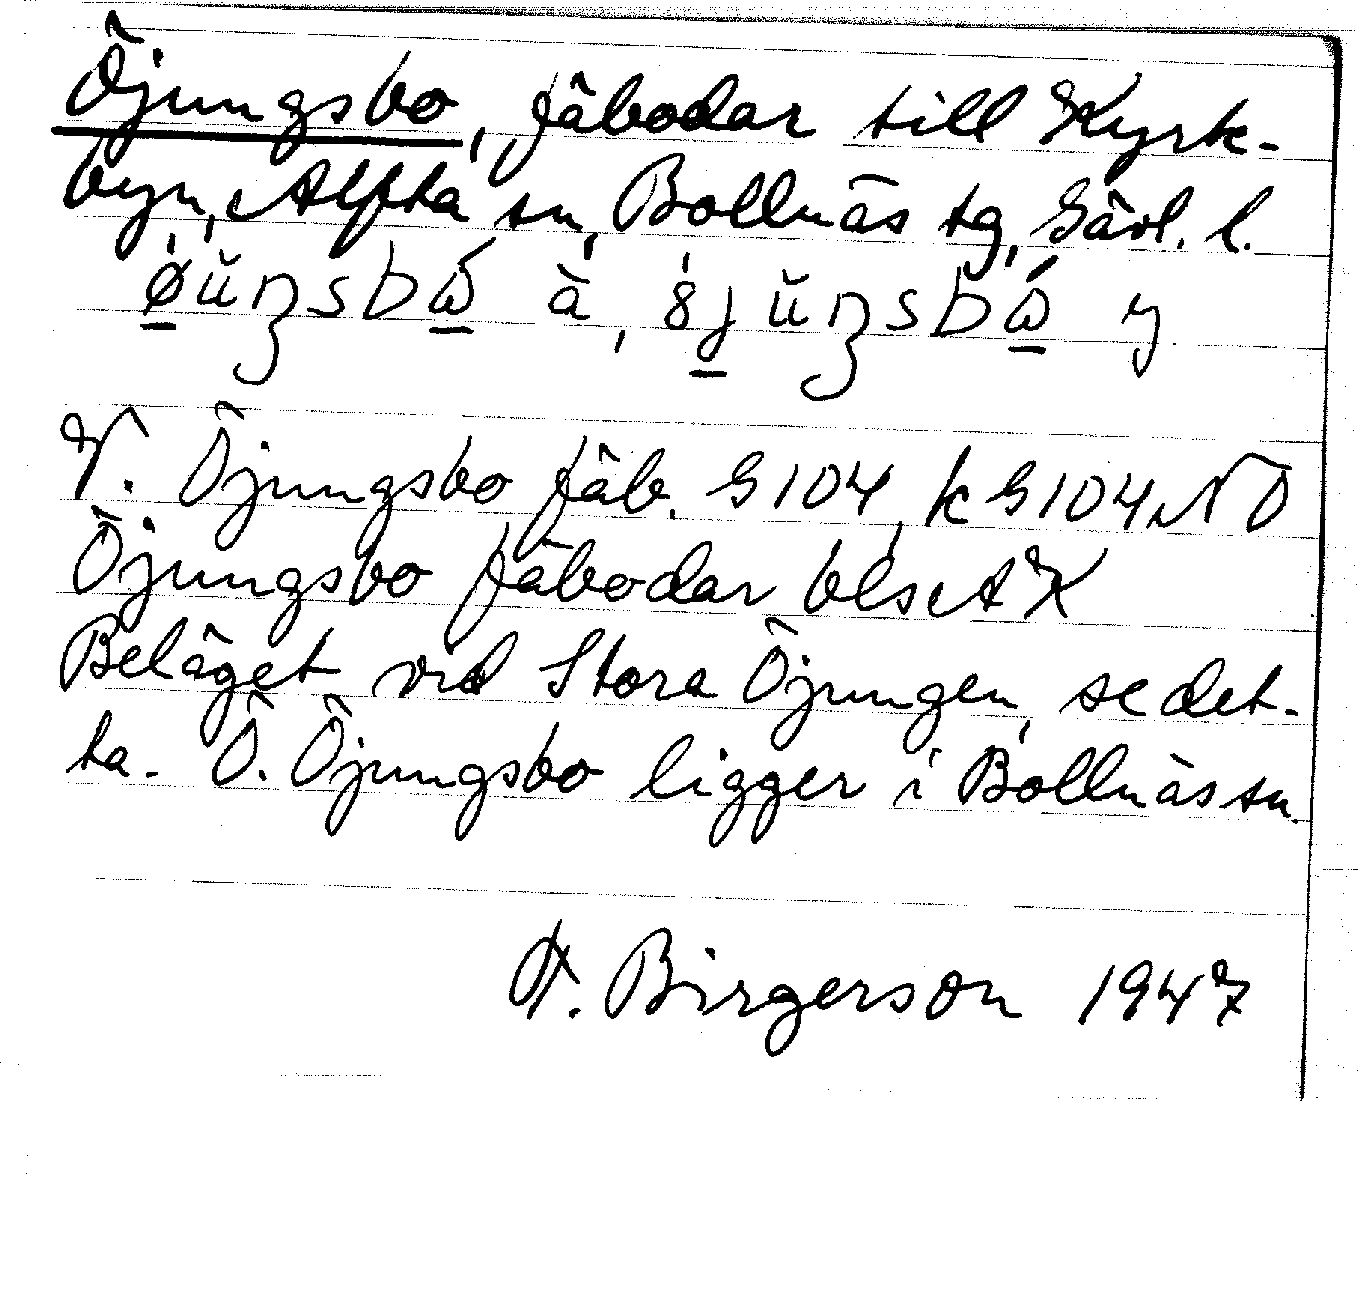 Öjungsbo, fäbodar till Kyrk-
byn, Alfta sn, Bollnäs tg, Gävl. l.
ä, y
V. Öjungsbo fäb. G104, kG104NO
Öjungsbo fäbodar bls AK
Beläget vid Stora Öjungen, se det-
ta. Ö. Öjungsbo ligger i Bollnäs sn.
A. Birgerson 1947